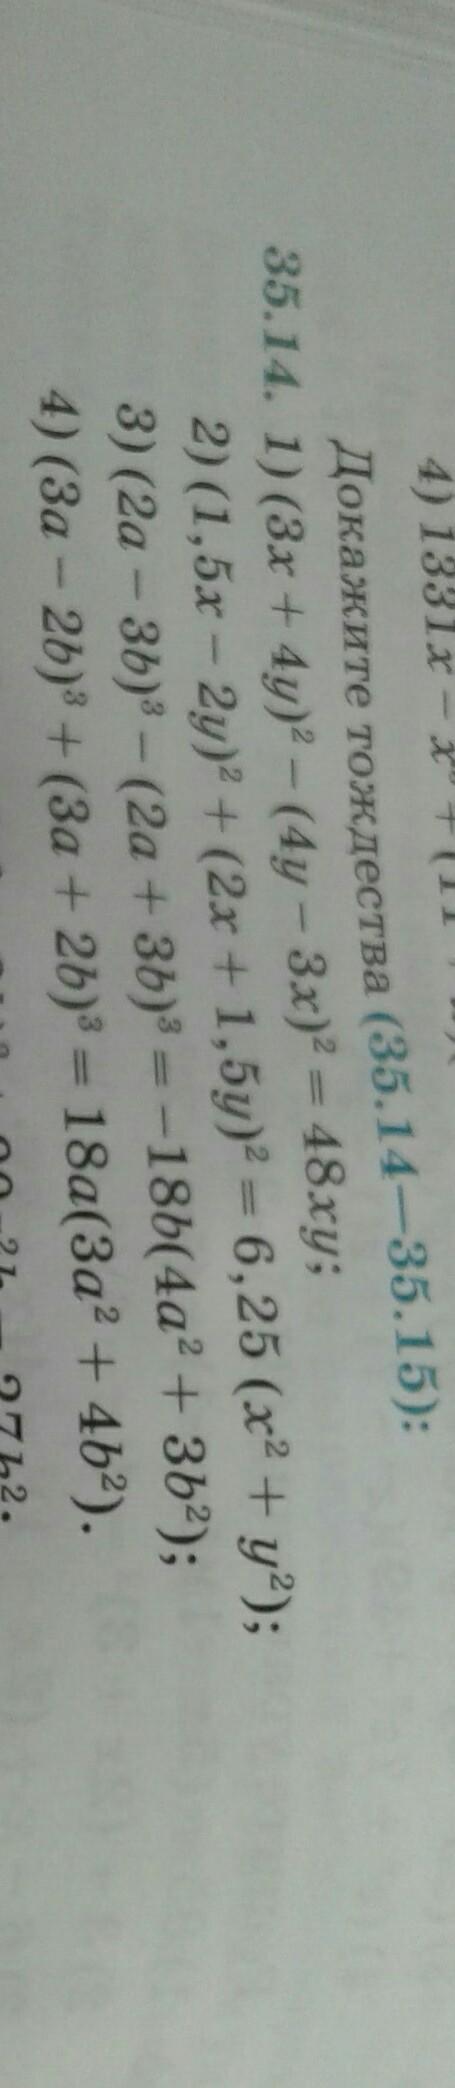 4) 1331x – x³ + (11
Докажите тождества (35.14—35.15):
35.14. 1) (3x + 4y)² – (4y – 3x)² = 48xy;
2) (1,5x – 2y)² + (2x + 1,5y)² = 6,25 (x² + y²);
3) (2a – 3b)³ – (2a + 3b)³ = –18b(4a² + 3b²);
4) (3a – 2b)³ + (3a + 2b)³ = 18a(3a² + 4b²).
27b²;